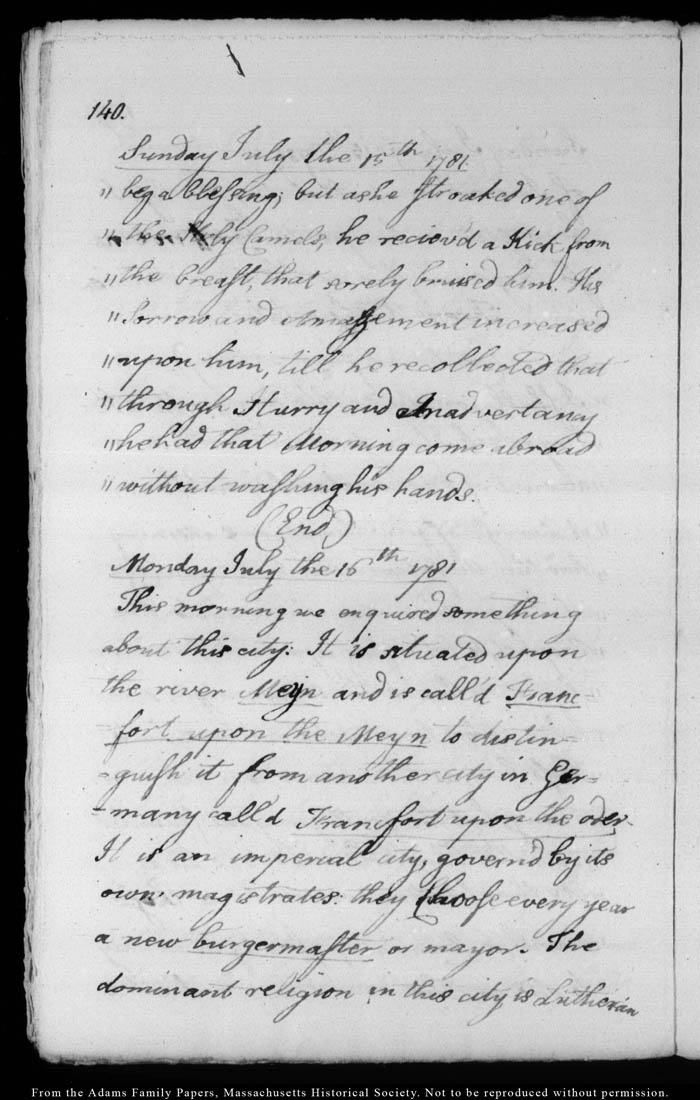 140.
Sunday July the 15th 1781.
" beg a blessing; but as he Stroaked one of
" the Holy Camels, he reciev'd a Kick from
" the breast, that sorely bruised him. His
" Sorrow and Amazement increased
" upon him, till he recollected that
" through Hurry and Inadvertancy
" he had that Morning come abroad
" without washing his hands.
(End)
Monday July the 16th 1781
This morning we enquired something
about this city: It is situated upon
the river Meyn and is call'd Franc=
fort upon the Meyn to distin=
=guish it from another city in Ger=
=many call'd Francfort upon the oder.
It is an imperial city, govern'd by its
own magistrates: they Choose every year
a new burgermaster or mayor. The
dominant religion in this city is Lutheran
From the Adams Family Papers, Massachusetts Historical Society. Not to be reproduced without permission.